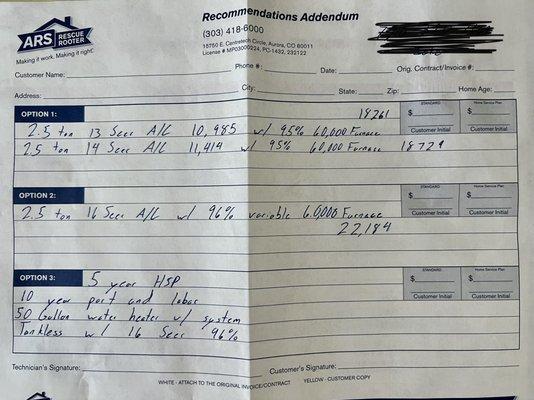 ARS RESCUE ROOTER
Making it work. Making it right.
Recommendations Addendum
(303) 418-6000
15750 E. Centretech Circle, Aurora, CO 80011
License # MP03000224, PC-1432, 232122
Customer Name: Phone #: Date: Orig. Contract/Invoice #:
Address: City: State: Zip: Home Age:
OPTION 1: 18261
STANDARD Home Service Plan
$ $
Customer Initial Customer Initial
2.5 ton 13 Seer A/C 10,985 w/ 95% 60,000 Furnace
2.5 ton 14 Seer A/C 11,414 w/ 95% 60,000 Furnace 18729
OPTION 2:
STANDARD Home Service Plan
$ $
Customer Initial Customer Initial
2.5 ton 16 Seer A/C w/ 96% variable 60,000 Furnace
22,184
OPTION 3: 5 year HSP
STANDARD Home Service Plan
$ $
Customer Initial Customer Initial
10 year part and labor
50 Gallon water heater w/ system
Tankless w/ 16 Seer 96%
Technician's Signature: Customer's Signature:
WHITE - ATTACH TO THE ORIGINAL INVOICE/CONTRACT YELLOW - CUSTOMER COPY